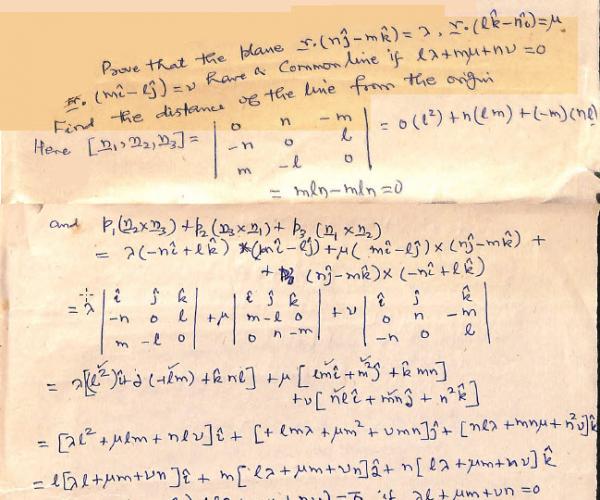 Prove that the plane r.(nĵ-mk̂)=λ, r.(lk̂-nî)=μ
r.(mî-lĵ)=ν have a common line if lλ+mμ+nν=0
Find the distance of the line from the origin
Here [n₁,n₂,n₃]= | 0 n -m | = 0(l²)+n(lm)+(-m)(nl)
| -n 0 l |
| m -l 0 |
= mln-mln=0
and p₁(n₂×n₃)+p₂(n₃×n₁)+p₃(n₁×n₂)
= λ(-nî+lk̂)×(mî-lĵ)+μ(mî-lĵ)×(nĵ-mk̂)+
+ (nĵ-mk̂)×(-nî+lk̂)
= λ | î ĵ k̂ | +μ | î ĵ k̂ | +ν | î ĵ k̂ |
| -n 0 l | | m -l 0 | | 0 n -m |
| m -l 0 | | 0 n -m | | -n 0 l |
= λ[(l²)î+ĵ(+lm)+k̂nl]+μ[lmî+m²ĵ+k̂mn]
+ν[nlî+mnĵ+n²k̂]
= [λl²+μlm+nlν]î+[+lmλ+μm²+νmn]ĵ+[nlλ+mnμ+n²ν]k̂
= l[λl+μm+νn]î+m[λl+μm+νn]ĵ+n[lλ+μm+nν]k̂
if λl+μm+νn=0